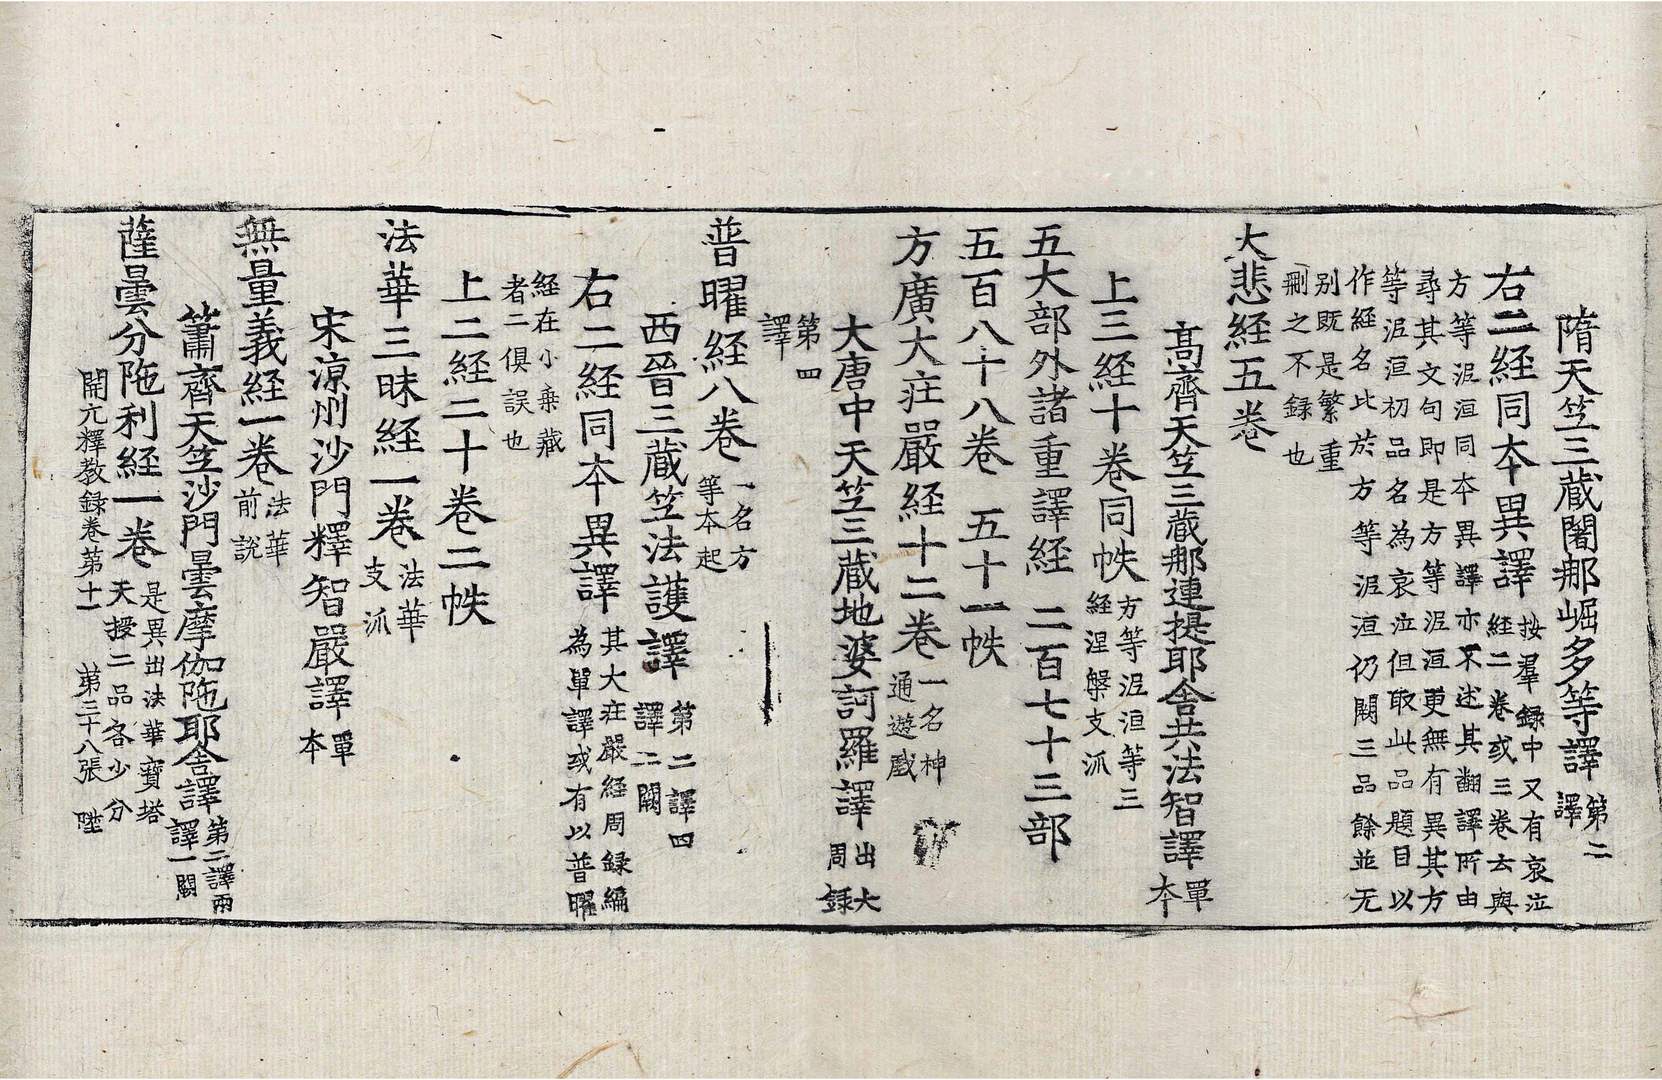 隋天笠三蔵闍那崛多等譯第二譯
右二経同本異譯按羣録中又有哀泣経二卷或三卷云與
方等泥洹同本異譯亦不述其翻譯所由
尋其文句即是方等泥洹更無有異其方
等泥洹初品名為哀泣但取此品題目以
作経名比於方等泥洹仍闕三品餘並无
别既是繁重
刪之不録也
大悲経五卷
髙齊天笠三蔵那連提耶舎共法智譯單本
上三経十卷同帙方等泥洹等三経涅槃支派
五大部外諸重譯経 二百七十三部
五百八十八卷 五十一帙
方廣大荘嚴経十二卷一名神通遊戯
大唐中天笠三蔵地婆訶羅譯出大周録
第四譯
普曜経八卷一名方等本起
西晉三蔵笠法護譯第二譯四譯二闕
右二経同本異譯其大荘嚴経周録編為單譯或有以普曜
経在小乗蔵者二俱誤也
上二経二十卷二帙
法華三昧経一卷法華支派
宋涼州沙門釋智嚴譯單本
無量義経一卷法華前說
蕭齊天笠沙門曇摩伽陁耶舎譯第二譯兩譯一闕
薩曇分陁利経一卷是異出法華寶塔天授二品各少分
開元釋教録卷第十一 第三十八張 陞